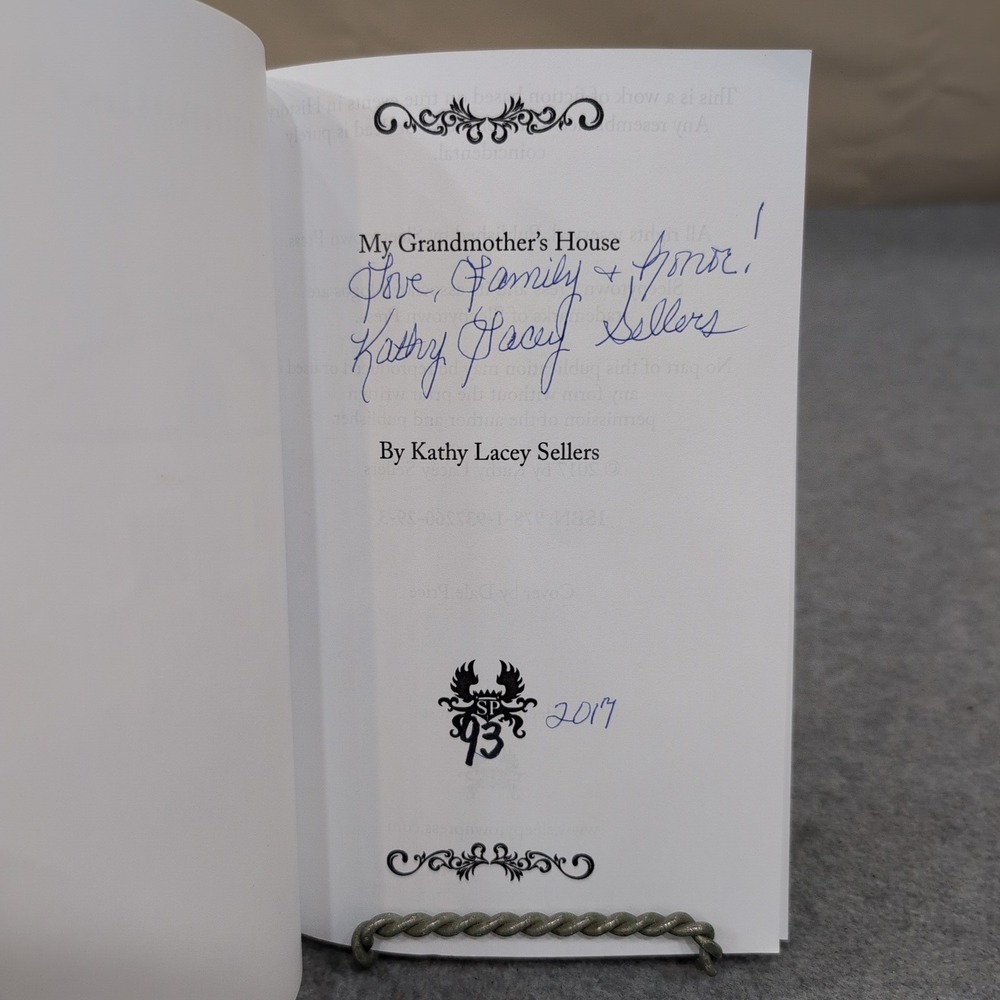 My Grandmother's House
Love, Family & Honor!
Kathy Lacey Sellers
By Kathy Lacey Sellers
SP
93
2017